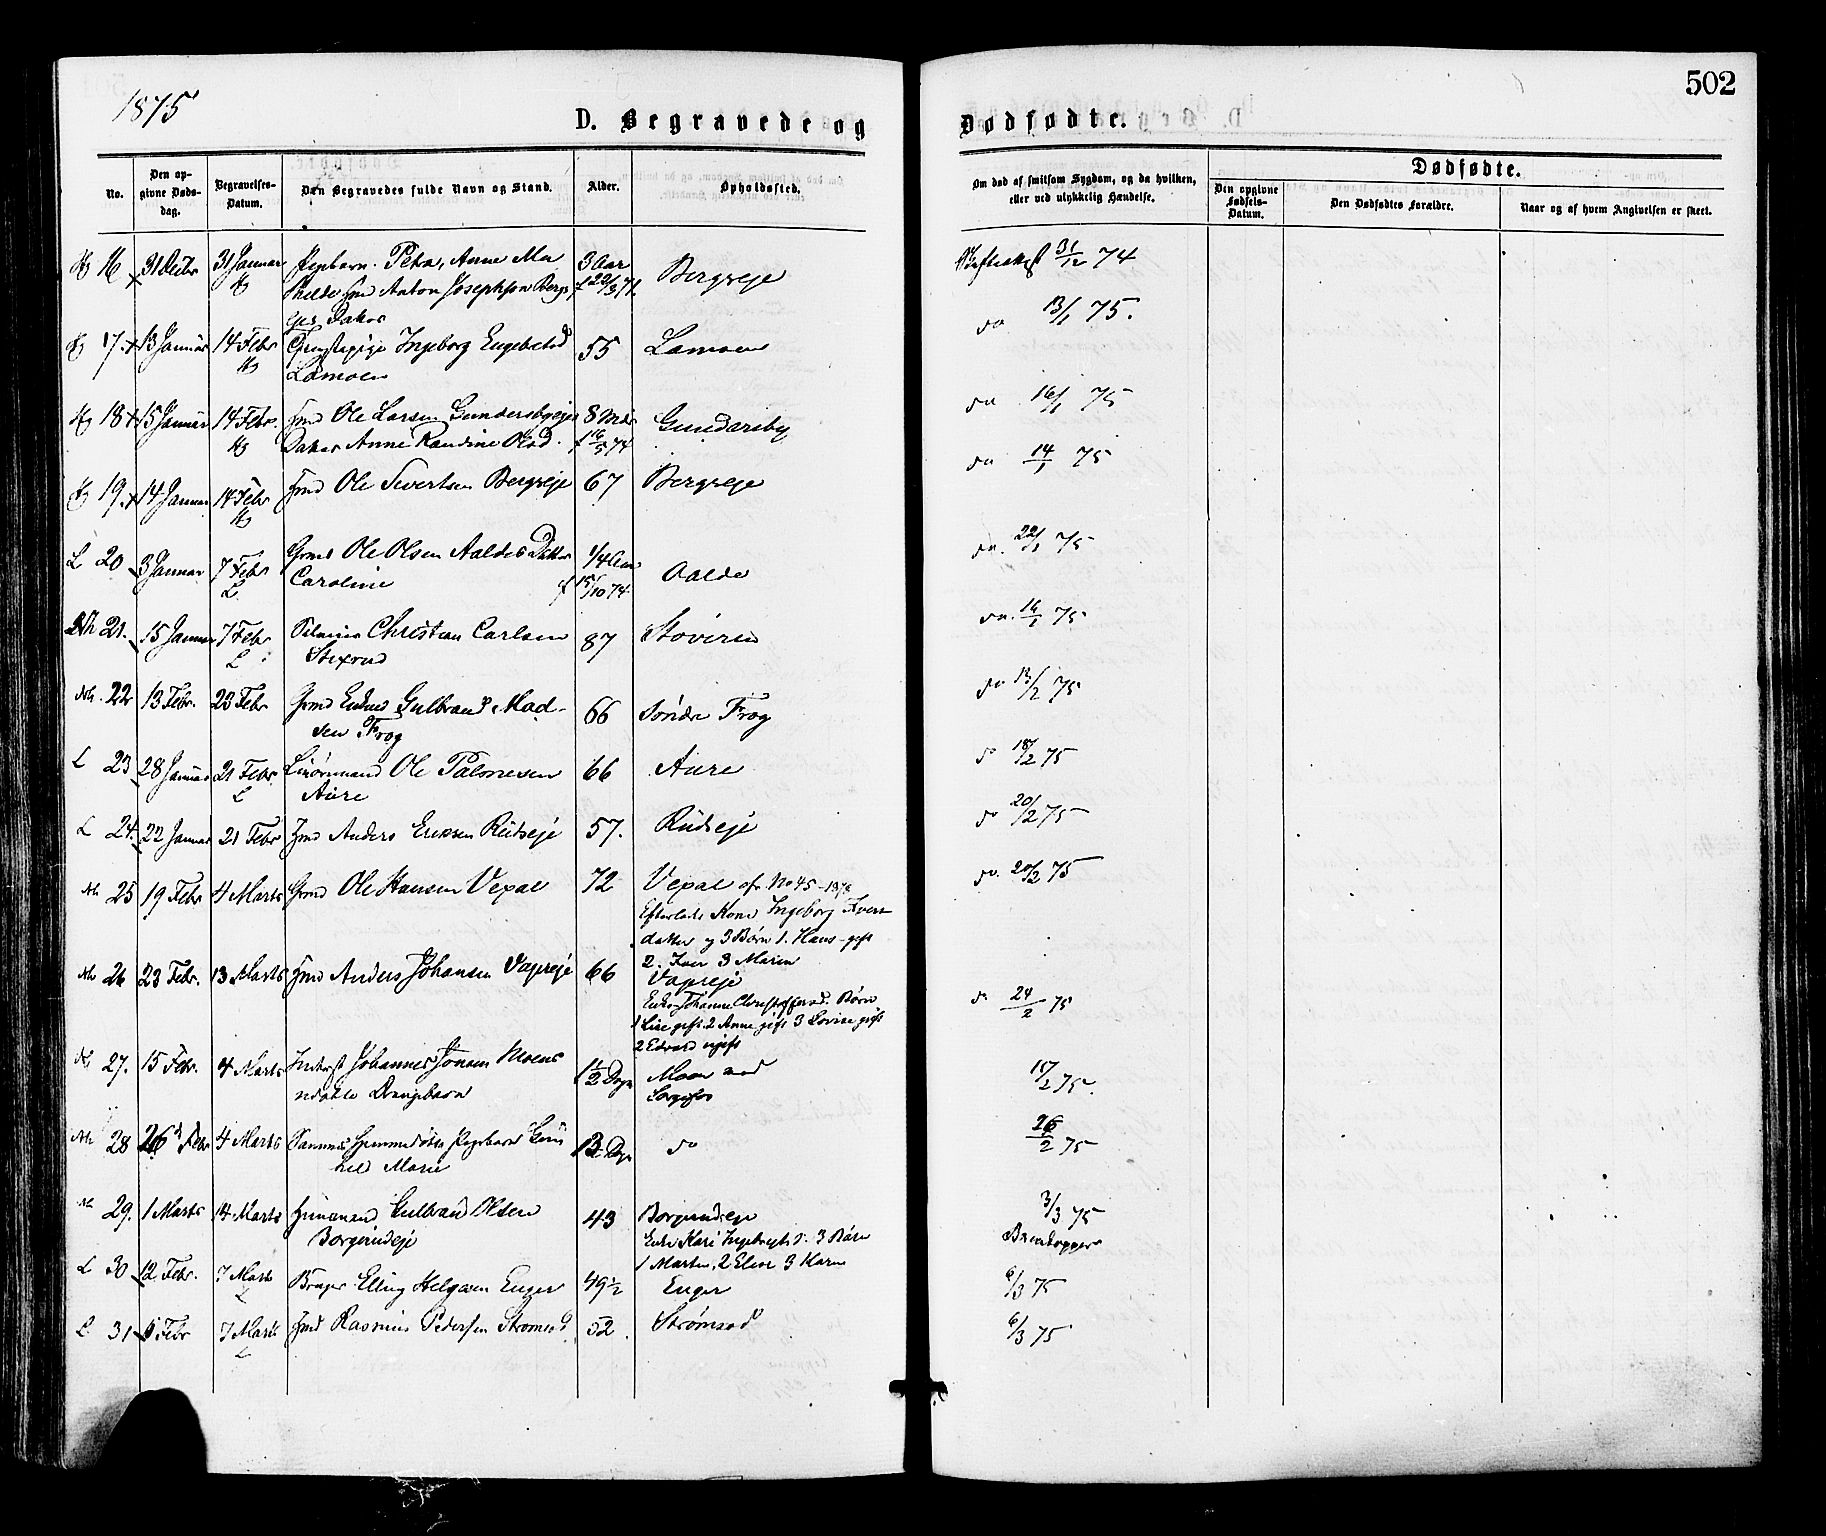 1875
502
D. Begravede og
Dødfødte.
No.
Den opgivne Dødsdag.
Begravelses-Datum.
Den Begravedes fulde Navn og Stand.
Alder.
Opholdssted.
Om død af smitsom Sygdom, og da hvilken, eller ved ulykkelig Hændelse.
Dødfødte.
Den opgivne Fødsels-Datum.
Den Dødfødtes Forældre.
Naar og af hvem Angivelsen er skeet.
16 31 Decbr 31 Januar Pigebarn Petra, Anne Ma 3 Aar Bergseje 31/12 74
thilde Anton Josephsen Bergs f 22/3 71.
ejes Datter
17. 13 Januar 14 Febr Ingeborg Engebretsd 55 Lamoen do 13/1 75.
Lamoen
18 15 Januar 14 Febr. Hmd Ole Larsen Gundersbyejes 8 Mdr Gundersby do 16/1 75
Datter Anne Randine Olsd. f 16/5 74
19. 14 Januar 14 Febr Hmd Ole Sivertsen Bergseje 67 Bergseje do 14/1 75
L 20 3 Januar 7 Febr Grmd Ole Olsen Aaldes Datter 1/4 Aar Aalde do. 22/1 75
L Caroline f 15/10 74
Nh 21. 15 Januar 7 Febr Christian Carlsen 87 Støveren do. 16/1 75
L Stixrud
Nh. 22 13 Febr. 23 Febr Grmd Gulbrand Mad- 66 Søndre Frog do 13/2 75
sen Frog
L 23 28 Januar 21 Febr. Ole Palmesen 66 Aure do 18/2 75
L Aure
L 24. 22 Januar 21 Febr Hmd Anders Eriksen Rudseje 57. Rudseje do 20/2 75
Nh 25 19 Febr 4 Marts Grmd Ole Hansen Vexal 72 Vexal do. 20/2 75
Efterlatt Kone Ingeborg Ivers
datter og 3 Børn 1. Hans gift
2. Iver 3 Maren
Nh 26 23 Febr. 13 Marts Hmd Anders Johansen 66 do 24/2 75
Enke Johanne Christoffersd. Børn
1 Lise gift 2 Anne gift 3 Lovise gift
2 Edvard ugift
Nh 27. 15 Febr. 4 Marts Inderst Johannes Jonsen Moens 1 1/2 Døgn Moen ved 15/2 75.
Drengebarn
Nh 28 26 Febr 4 Marts Sammes Pigebarn Gun do 26/2 75
hild Marie
Nh 29. 1 Marts 14 Marts Husmand Gulbrand Olsen 43 Borgerudeje 3/3 75
Borgerudeje Enke Kari Ingebrigtsd. 3 Børn
1 Martin, 2 Elise 3 Karen
L 30 12 Febr. 7 Marts Bruger Elling Helgesen Enger 49 1/2 Enger 6/3 75
L 31 6 Febr 7 Marts Hmd Rasmus Pedersen Strømsod 52 Strømsod 6/3 75
L